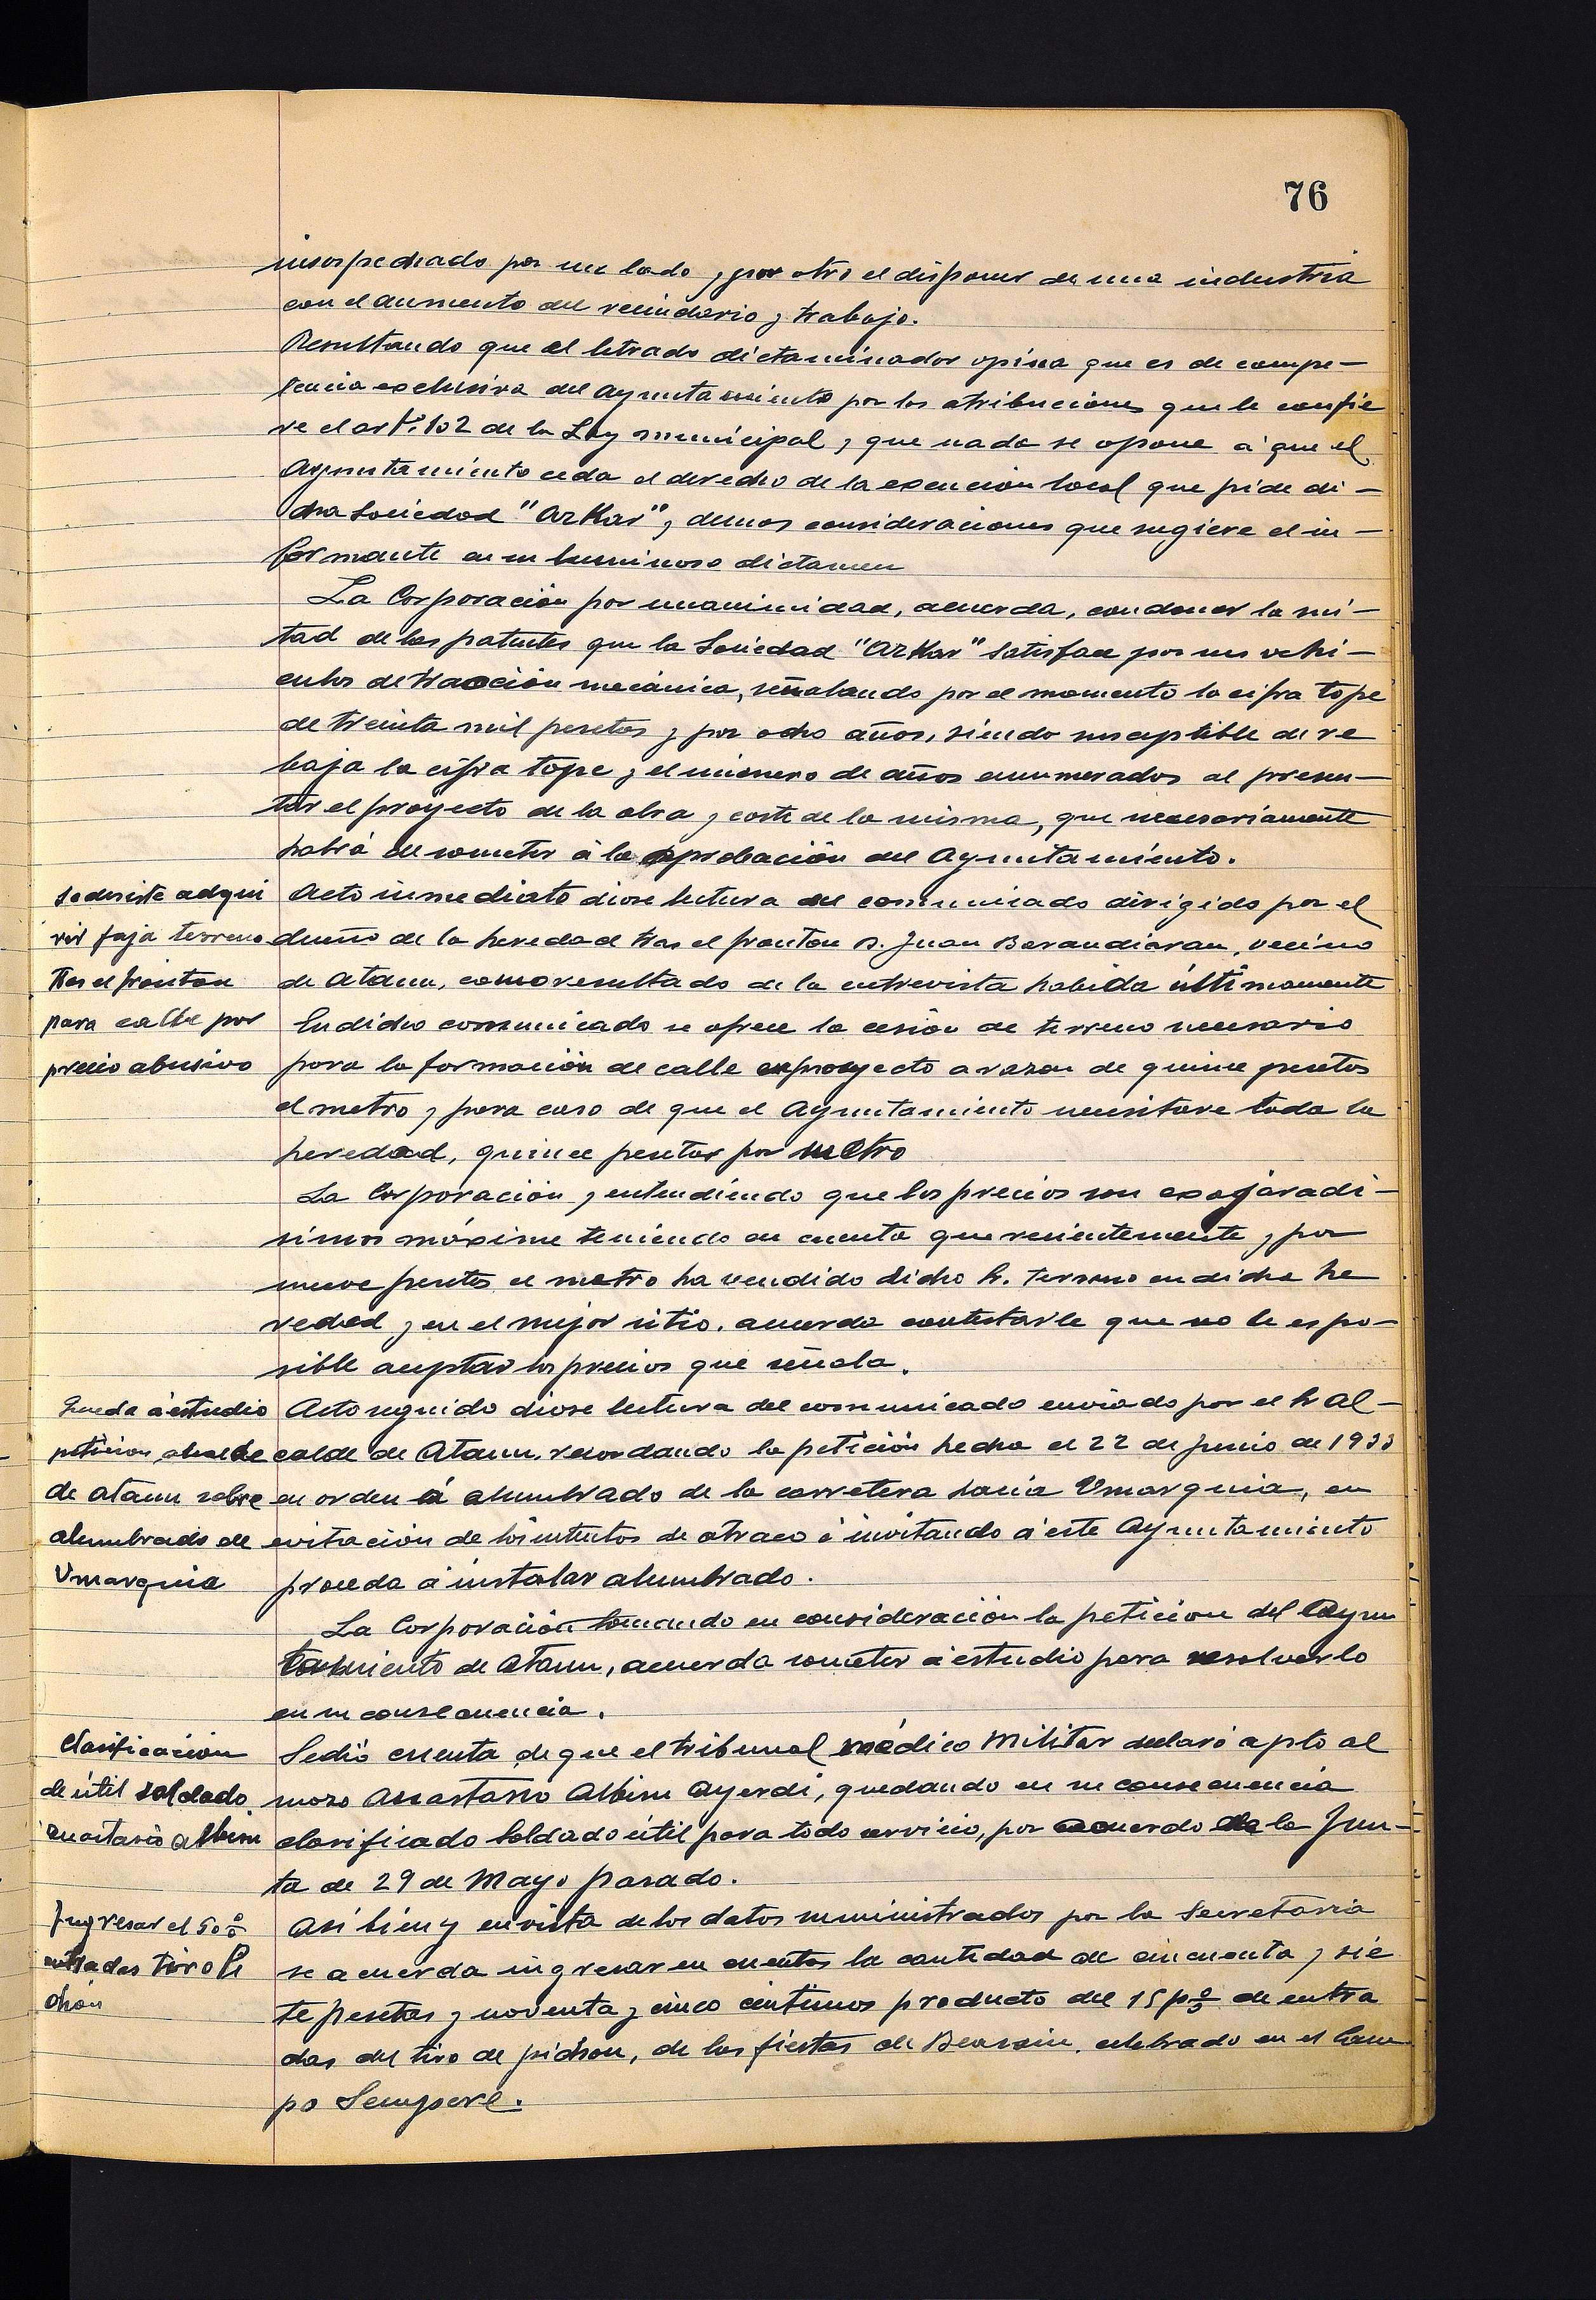 76
insospechado por un lado y por otro el disponer de una industria
con el aumento del vecindario y trabajo.
Resultando que el letrado dictaminador opina que es de compe-
tencia exclusiva del Ayuntamiento por las atribuciones que le confie
re el artº. 102 de la Ley municipal y que nada se opone á que el
Ayuntamiento ceda el derecho de la exencion local que pide di-
cha Sociedad "Arkar" y demas consideraciones que sugiere el in-
formante en su luminoso dictamen
La Corporación por unanimidad, acuerda, condonar la mi-
tad de las patentes que la Sociedad "Arkar" satisface por sus vehi-
culos de tracción mecánica, señalando por el momento la cifra tope
de treinta mil pesetas y por ocho años, siendo susceptible de re
baja la cifra tope y el número de años enumerados al presen-
tar el proyecto de la obra y coste de la misma, que necesariamente
habrá de someter á la aprobación del Ayuntamiento.
Se desiste adqui
rir faja terreno
tras el fronton
para calle por
precio abusivo
Acto inmediato diose lectura del comunicado dirigido por el
dueño de la heredad tras el fronton D. Juan Barandiaran, vecino
de Ataun, como resultado de la entrevista habida últimamente
En dicho comunicado se ofrece la cesión de terreno necesario
para la formación de calle en proyecto a razon de quince pesetas
el metro y para caso de que el Ayuntamiento necesitare toda la
heredad, quince pesetas por metro
La Corporación, entendiendo que los precios son exajeradi-
simos máxime teniendo en cuenta que recientemente y por
nueve pesetas el metro ha vendido dicho Sr. terreno en dicha he
redad y en el mejor sitio, acuerda contestarle que no le es po-
sible aceptar los precios que señala.
Queda á estudio
peticion alcalde
de Ataun sobre
alumbrado de
Umarquia
Acto seguido diose lectura del comunicado enviado por el Sr Al-
calde de Ataun, recordando la petición hecha el 22 de Junio de 1933
en orden á alumbrado de la carretera hacia Umarquia, en
evitación de los intentos de atraco é invitando á este Ayuntamiento
proceda á instalar alumbrado.
La Corporación tomando en consideración la peticion del Ayun
tamiento de Ataun, acuerda someter á estudio para resolverlo
en su consecuencia.
Clasificacion
de útil soldado
Anastasio Albisu
Se dió cuenta de que el tribunal médico Militar declaró apto al
mozo Anastasio Albisu Ayerdi, quedando en su consecuencia
clasificado Soldado útil para todo servicio, por acuerdo de la Jun-
ta de 29 de Mayo pasado.
Ingresar el
entradas tiro Pi
chón
Asi bien y en vista de los datos suministrados por la Secretaria
se acuerda ingresar en cuentas la cantidad de cincuenta y sie
te pesetas y noventa y cinco céntimos producto del 15 p% de entra
das del tiro de pichon, de las fiestas de Beasain, celebrado en el Cam
po Sempere.